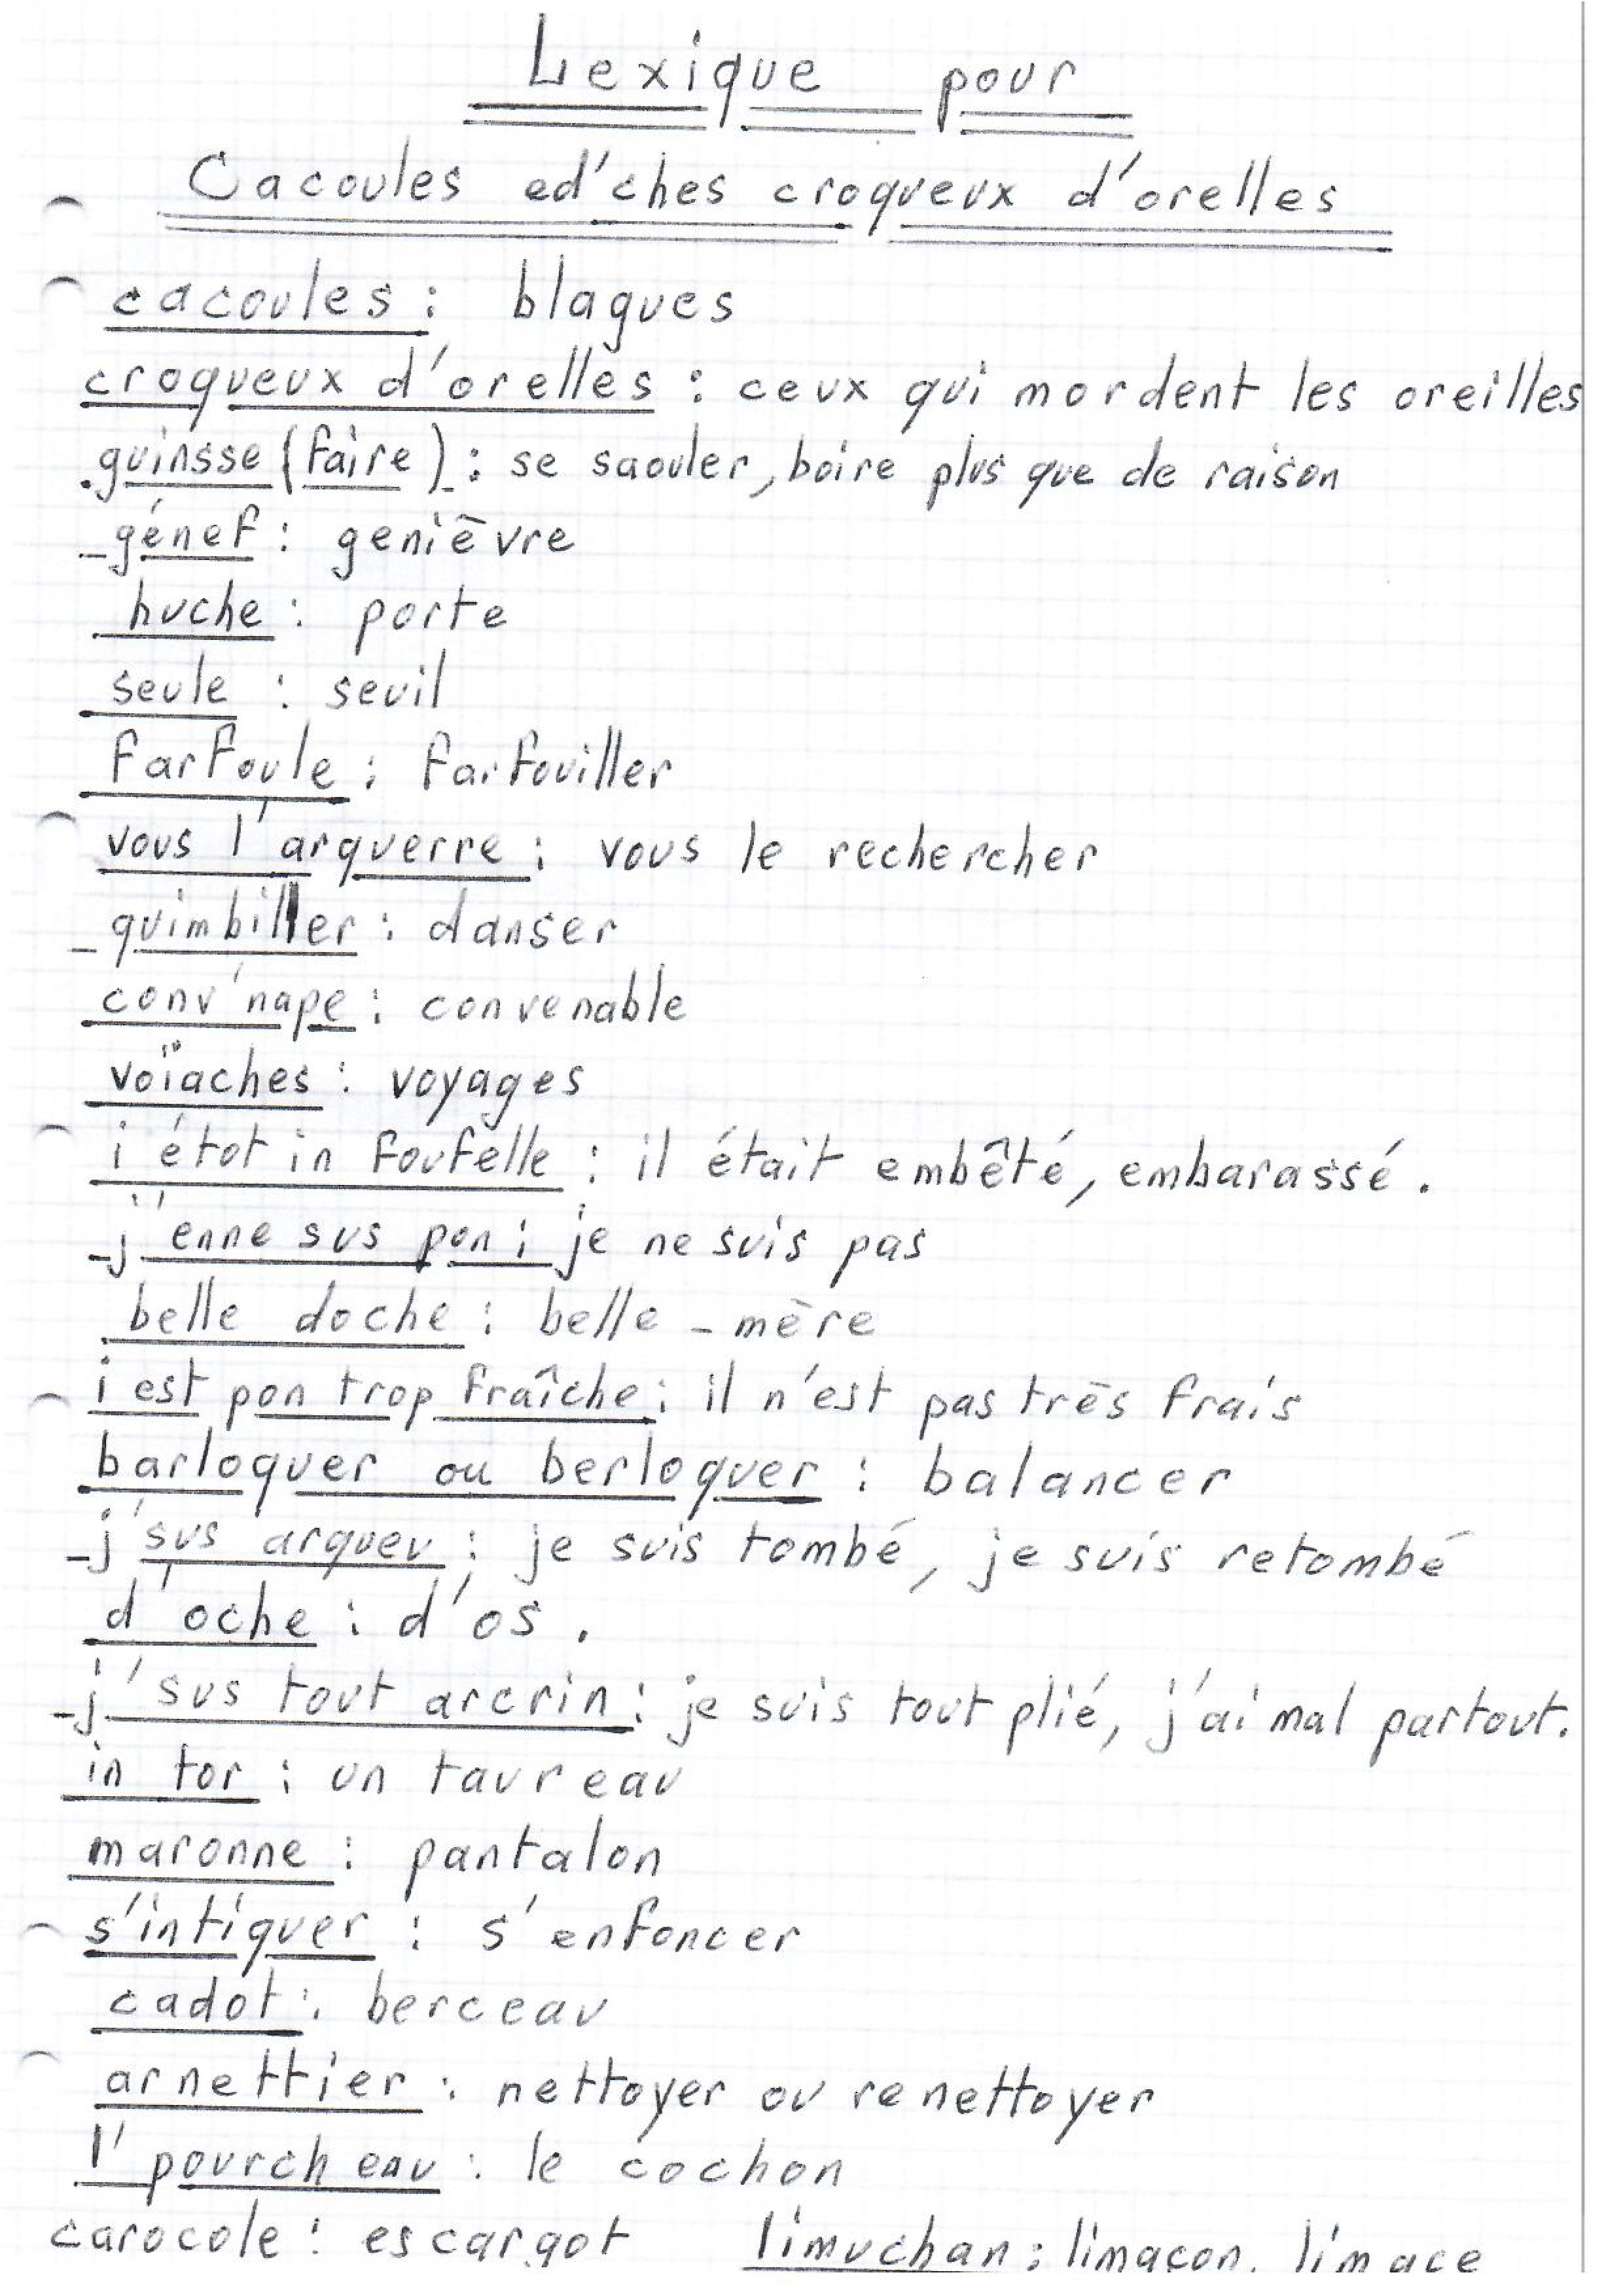 Lexique pour
Cacoules ed'ches croqueux d'orelles
cacoules : blagues
croqueux d'orelles : ceux qui mordent les oreilles
guinsse (faire) : se saouler, boire plus que de raison
génef : genièvre
huche : porte
seule : seuil
farfoule : farfouiller
vous l'arquerre : vous le rechercher
quimbiller : danser
conv'nape : convenable
voïaches : voyages
i étot in foufelle : il était embêté, embarassé.
j'enne sus pon : je ne suis pas
belle doche : belle-mère
i est pon trop fraîche : il n'est pas très frais
barloquer ou berloquer : balancer
j'sus arqueu : je suis tombé, je suis retombé
d'oche : d'os.
j'sus tout arcrin : je suis tout plié, j'ai mal partout.
in tor : un taureau
maronne : pantalon
s'intiquer : s'enfoncer
cadot : berceau
arnettier : nettoyer ou renettoyer
l'pourcheau : le cochon
carocole : escargot limuchan : limaçon, limace